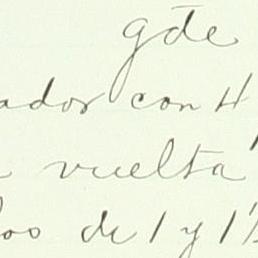 gde
ador con H
vuelta
os de 1 y 1½